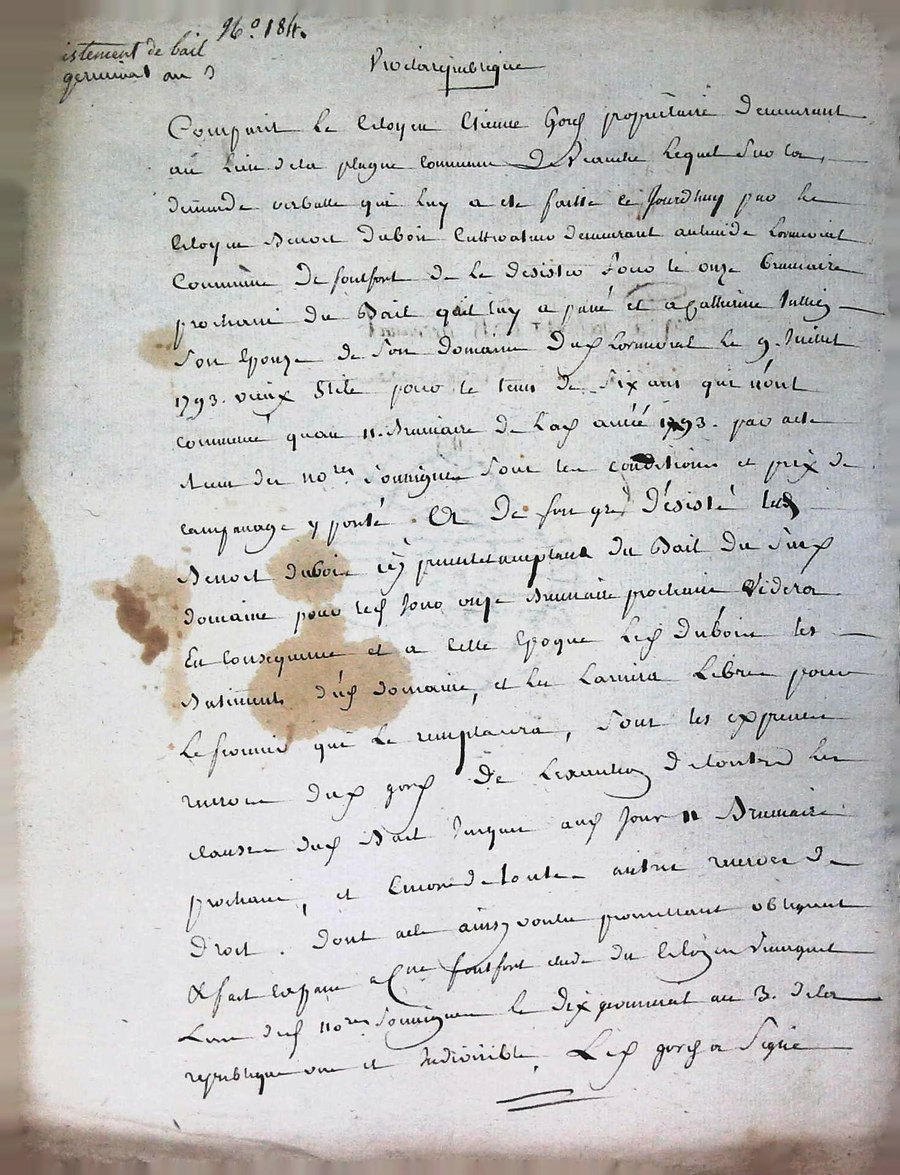 N.o 184.
istement de bail
germinal an 3
Vive la republique
Comparut le Citoyen Etienne Gord propriétaire demeurant
au Lieu de la plagne commune de lequel sur la
demande verballe qui luy a eté faitte ce Jourdhuy par le
Citoyen Benoit Duboin Cultivateur demeurant au lieu de
Commune de fontfort de le desister pour le onze brumaire
prochain du Bail qu'il luy a passé et a Catherine
son Epouze de son domaine dud. le 9. Juillet
1793. vieux stile pour le tems de six ans qui n'ont
commencé quau 11. Brumaire de lad. année 1793. par acte
recu des nores soussignés sous les conditions et prix de
y porté. Et de son gré désisté led.
Benoit duboin icy present et acceptant du Bail du susd.
domaine pour led. jour onze Brumaire prochain Videra
En Consequence et a cette Epoque led. Duboin les
Batiments dud. domaine, et les Laissera Libres pour
le fermier qui le remplacera, sous les expresses
reserves dud. gord de Lexecution de toutes les
clauses dud. Bail jusques aud. jour 11 Brumaire
prochain, et Encore de toutes autres reserves de
Droit. Dont acte ainsy voulu promettant obligeant
& fait et passé a fontfort etude du Citoyen
L'un desd. nores soussignés le dix germinal an 3. de la
republique une et Indivisible. Led. gord a Signé